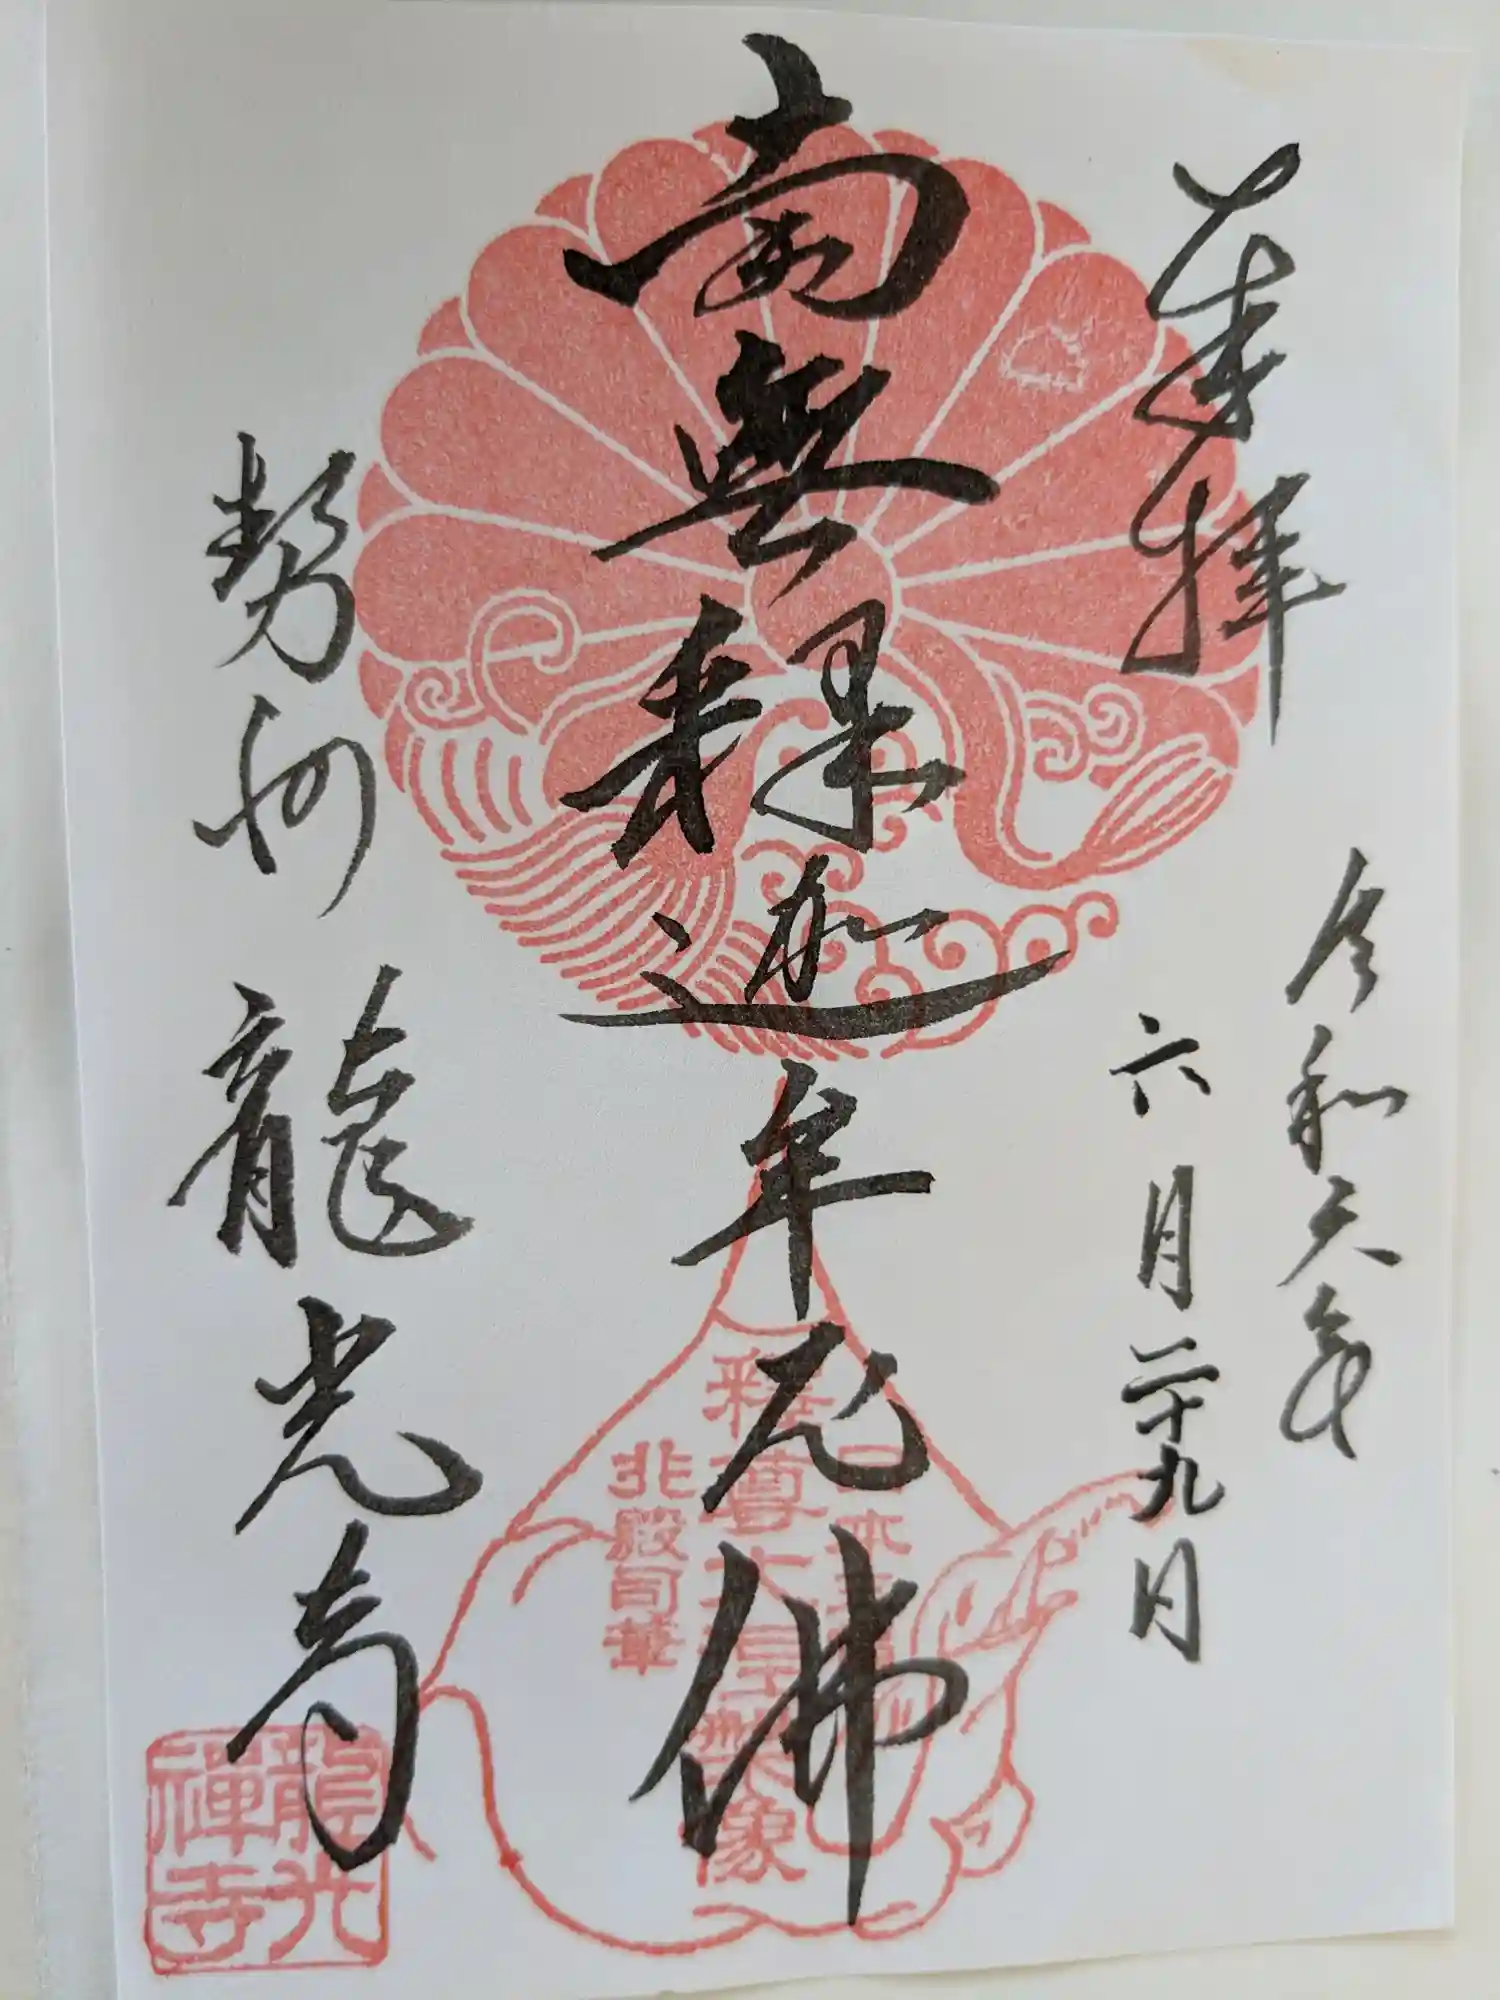 奉拝
令和元年
六月二十九日
南無釋迦牟尼佛
勢州 龍光寺
釋尊大涅槃像
兆殿司筆
龍光
禪寺